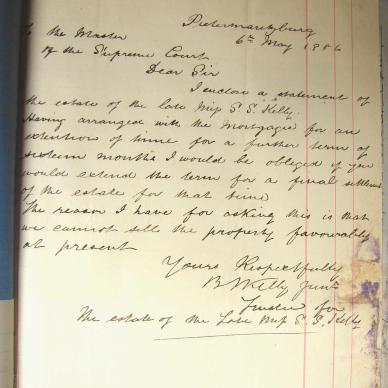 Pietermaritzburg
6th May 1886
To the Master
of the Supreme Court
Dear Sir
I enclose a statement of
the estate of the late Miss S. S. Kelly.
Having arranged with the Mortgagee for an
extention of time for a further term of
sixteen months I would be obliged if you
would extend the term for a final settlement
of the estate for that time
The reason I have for asking this is that
we cannot sell the property favourably
at present
Yours Respectfully
Kelly Junr
Trustee for
The estate of the Late Miss S. S. Kelly